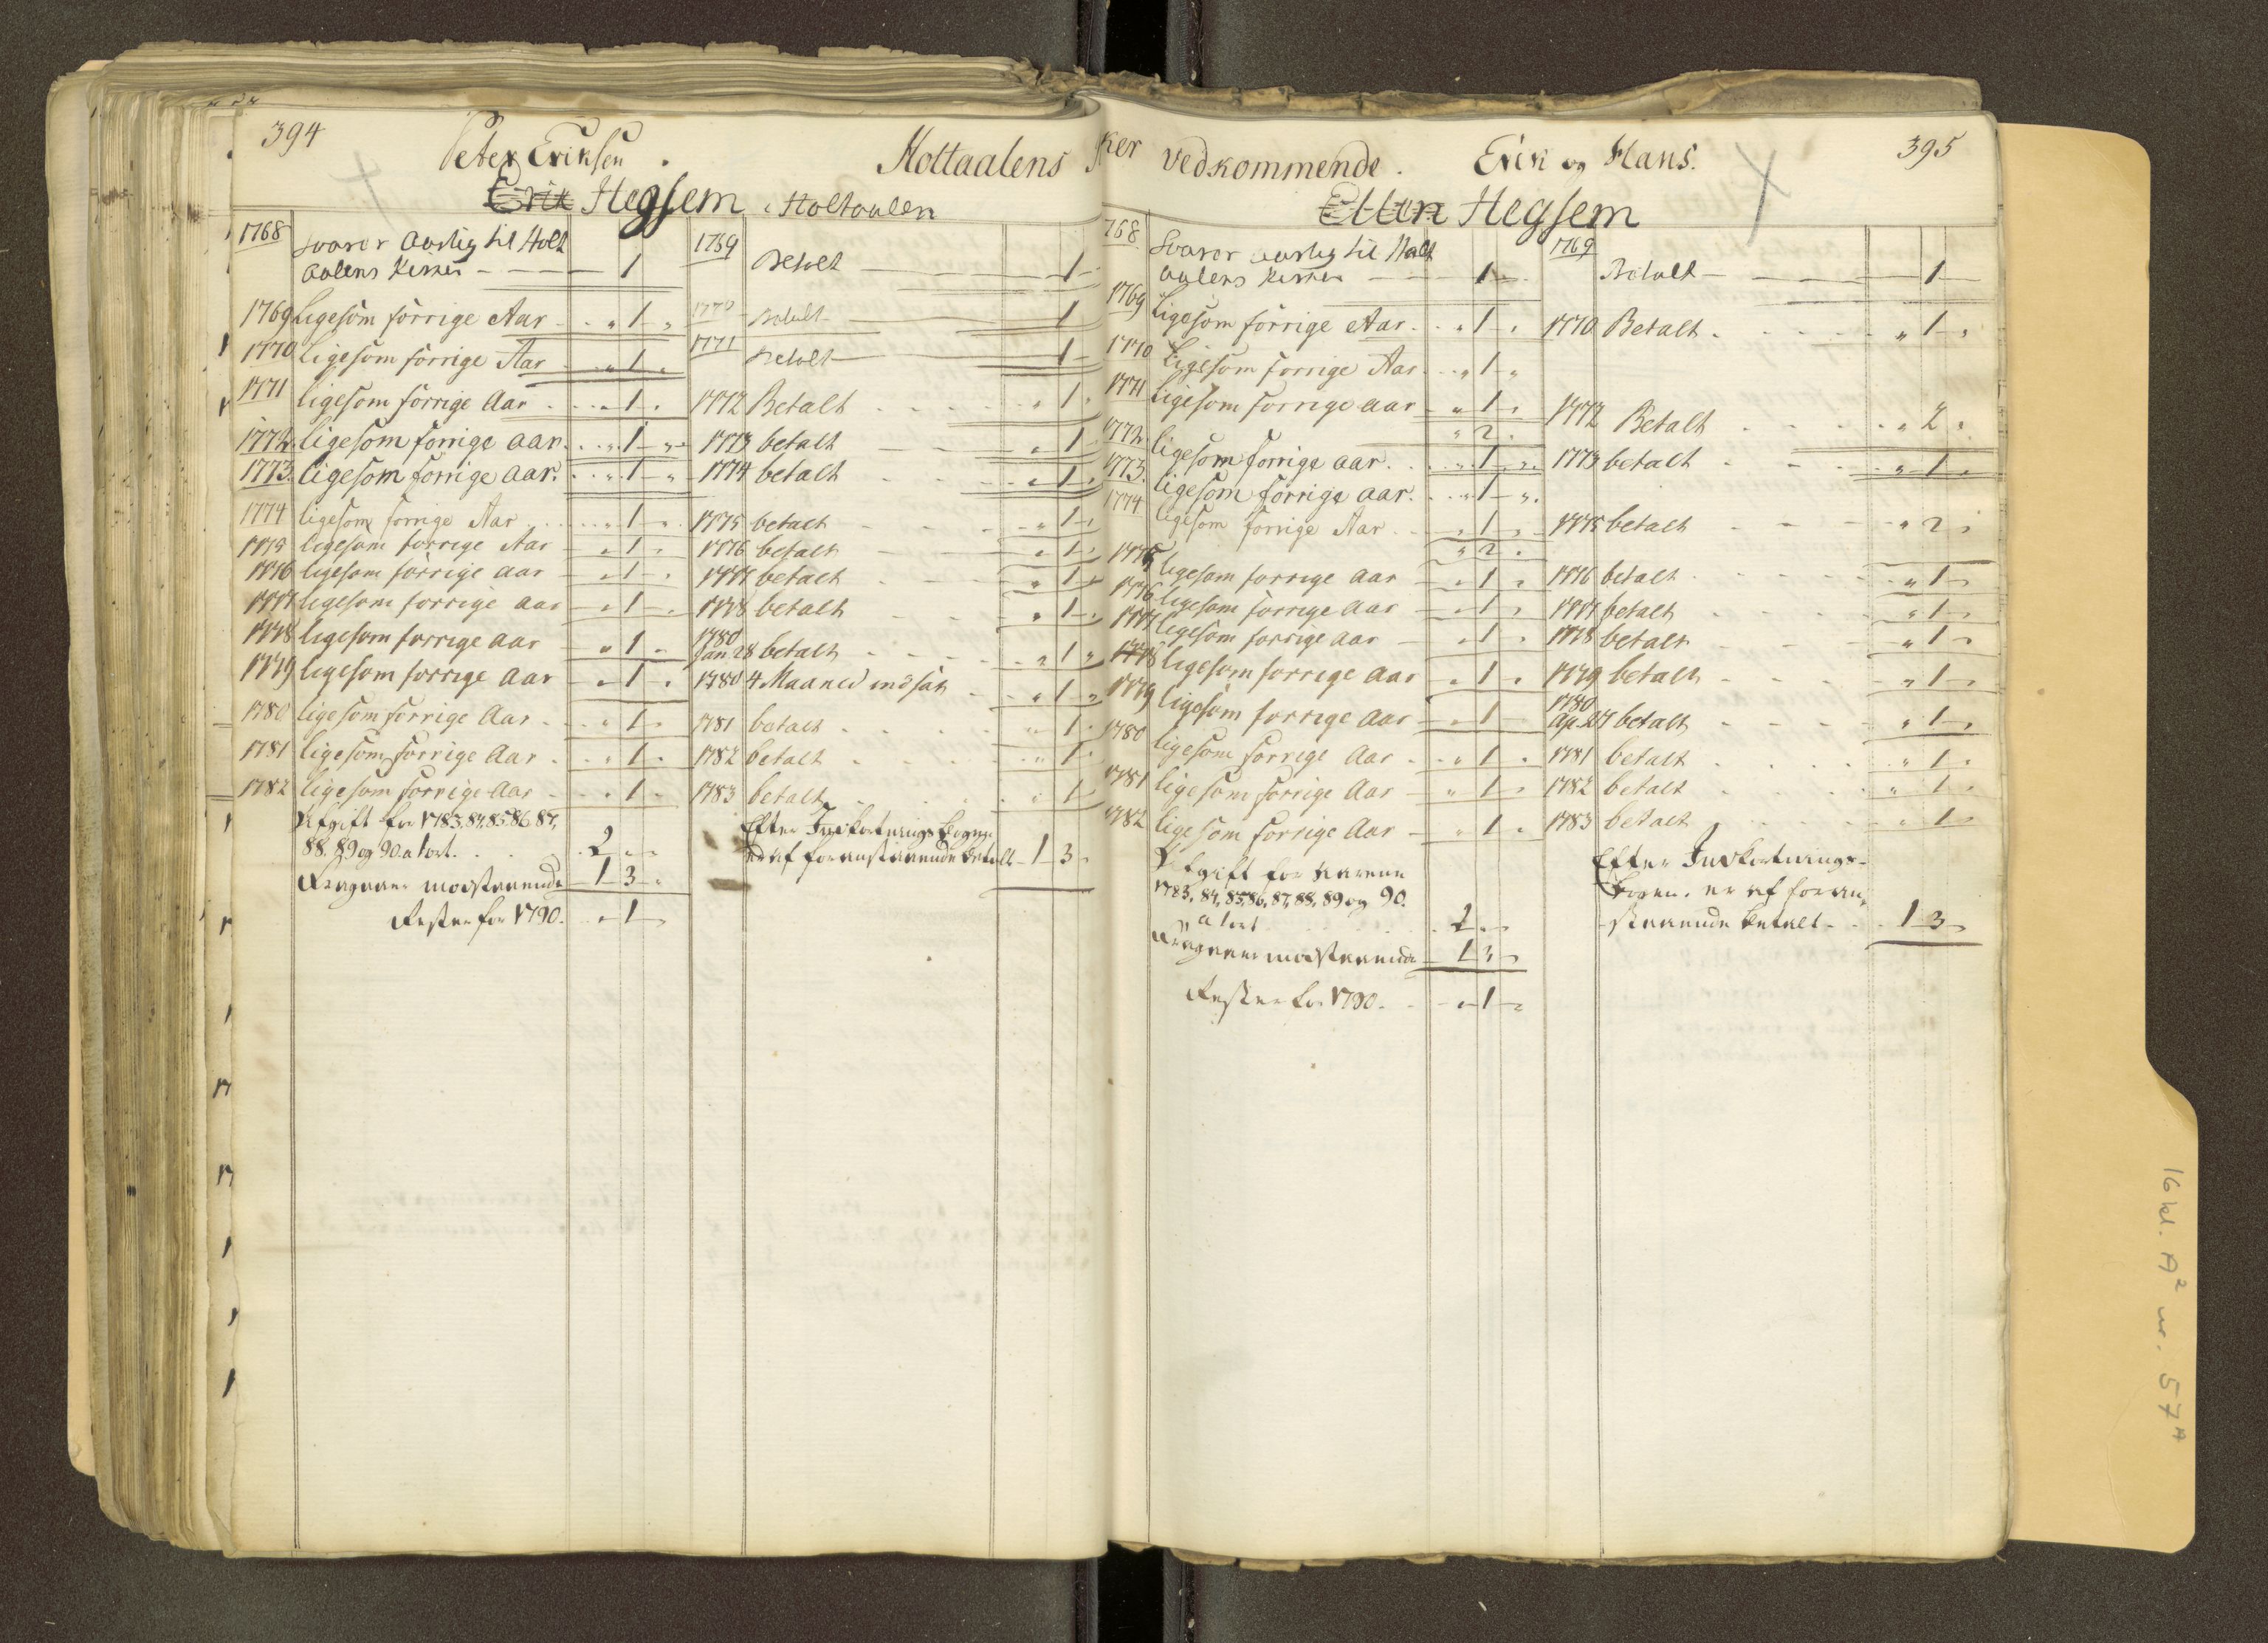 394
Peter Eriksen.
Holtaalens Kirker vedkommende.
Erik Hegsem i Holtaalen
1768 svarer aarlig til Holt
aalens Kirker - - - 1
1769 Betalt - 1 -
1769 Ligesom forrige Aar - . " 1 "
1770 Betalt - 1
1770 Ligesom forrige Aar - " 1 "
1771 Betalt - 1 -
1771 ligesom forrige Aar . . . " 1 .
1772 Betalt . . . . " 1 .
1772 ligesom forrige aar. . . " 1 - " -
1773 betalt - - " 1 -
1773. ligesom forrige aar. . . " 1 - "
1774 betalt . . . " 1 .
1774 ligesom forrige Aar . . . " 1 - "
1775 betalt - - - " 1 -
1775 ligesom forrige Aar - " 1 .
1776 betalt - - - " 1 -
1776 ligesom forrige aar - " 1 - .
1777 betalt . . - " 1 -
1777 ligesom forrige aar - " 1 - .
1778 betalt - - " 1 - .
1778 ligesom forrige aar - " 1 .
1780
Jan 28 betalt . . . - " 1 "
1779 ligesom forrige aar - " 1 .
1780 4 Maaned indsat - . " 1 "
1780 ligesom forrige Aar . . " 1 .
1781 betalt . . . . " 1 .
1781 ligesom forrige Aar . . " 1 .
1782 betalt . . . . " 1 .
1782 ligesom forrige Aar - . " 1 "
1783 betalt . . . " 1
Afgift for 1783, 84, 85, 86, 87,
88, 89 og 90 a 1 ort. . . 2 " "
Efter Indkortnings Bogen
er af foranstaaende betalt - 1 3 -
Fragaaer modstaaende 1 3 "
Rester for 1790. . " 1 "
395
Erik og Hans.
Ellen Hegsem
1768. Svarer aarlig til Holt
aalens Kirker - - 1 - .
1769 Betalt - - 1 -
1769 Ligesom forrige Aar . . " 1 - .
1770 Betalt . . . . " 1 .
1770 Ligesom forrige Aar . . " 1 - "
1771 Ligesom forrige aar - " 1 .
" 2 .
1772 Betalt . . . . " 2 .
1772. ligesom forrige aar. . . " 1 . " .
1773 betalt . - - " 1 .
1773. ligesom forrige aar. . . " 1 - ".
1774 ligesom forrige Aar . . " 1 .
" 2 .
1775 betalt - - - " 2 .
1775 ligesom forrige aar - " 1 .
1776 betalt . . . . " 1 -
1776 ligesom forrige aar - " 1 .
1777 betalt . . . " 1 -
1777 ligesom forrige aar - " 1 .
1778 betalt . - - " 1 -
1778 ligesom forrige aar . " 1 .
1779 betalt - - - " 1 -
1779 ligesom forrige aar - " 1 -
1780
Ap. 27 betalt - - - " 1 -
1780 ligesom forrige Aar . . " 1 .
1781 betalt . . . . " 1 .
1781 ligesom forrige Aar - " 1 .
1782 betalt . . . . " 1 .
1782 ligesom forrige Aar - " 1 .
1783 betalt . . . . " 1 -
Afgift for aarene
1783, 84, 85, 86, 87, 88, 89 og 90.
a 1 ort . . . . 2 " "
Fragaaer modstaaende - 1 3 "
Efter Indkortnings-
Bogen. er af foran,
staaende betalt - . . 1 3 "
Rester for 1790. . - " 1 "
16 kl. A2 nr. 57A